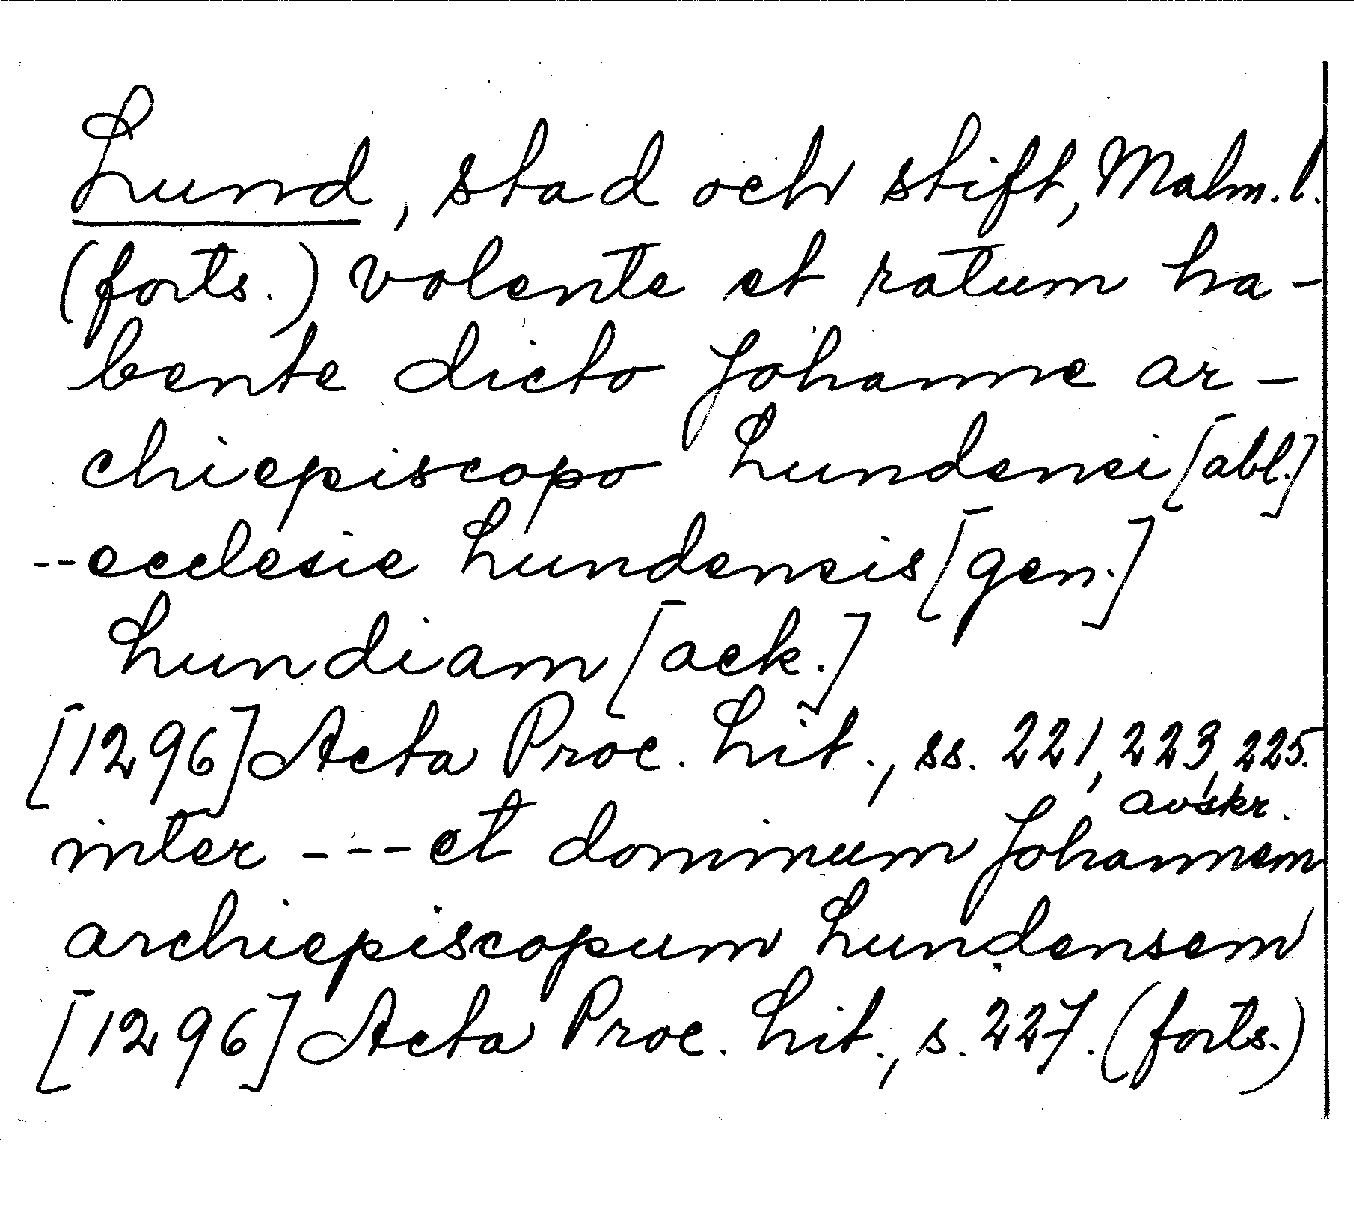 Lund, stad och stift, Malm. l.
(forts.) volente et ratum ha-
bente dicto Johanne ar-
chiepiscopo Lundensi [abl.]
--ecclesie Lundensis [gen.]
Lundiam [ack.]
[1296] Acta Proc. Lit., ss. 221, 223, 225.
avskr.
inter --- et dominum Johannem
archiepiscopum Lundensem
[1296] Acta Proc. Lit., s. 227. (forts.)